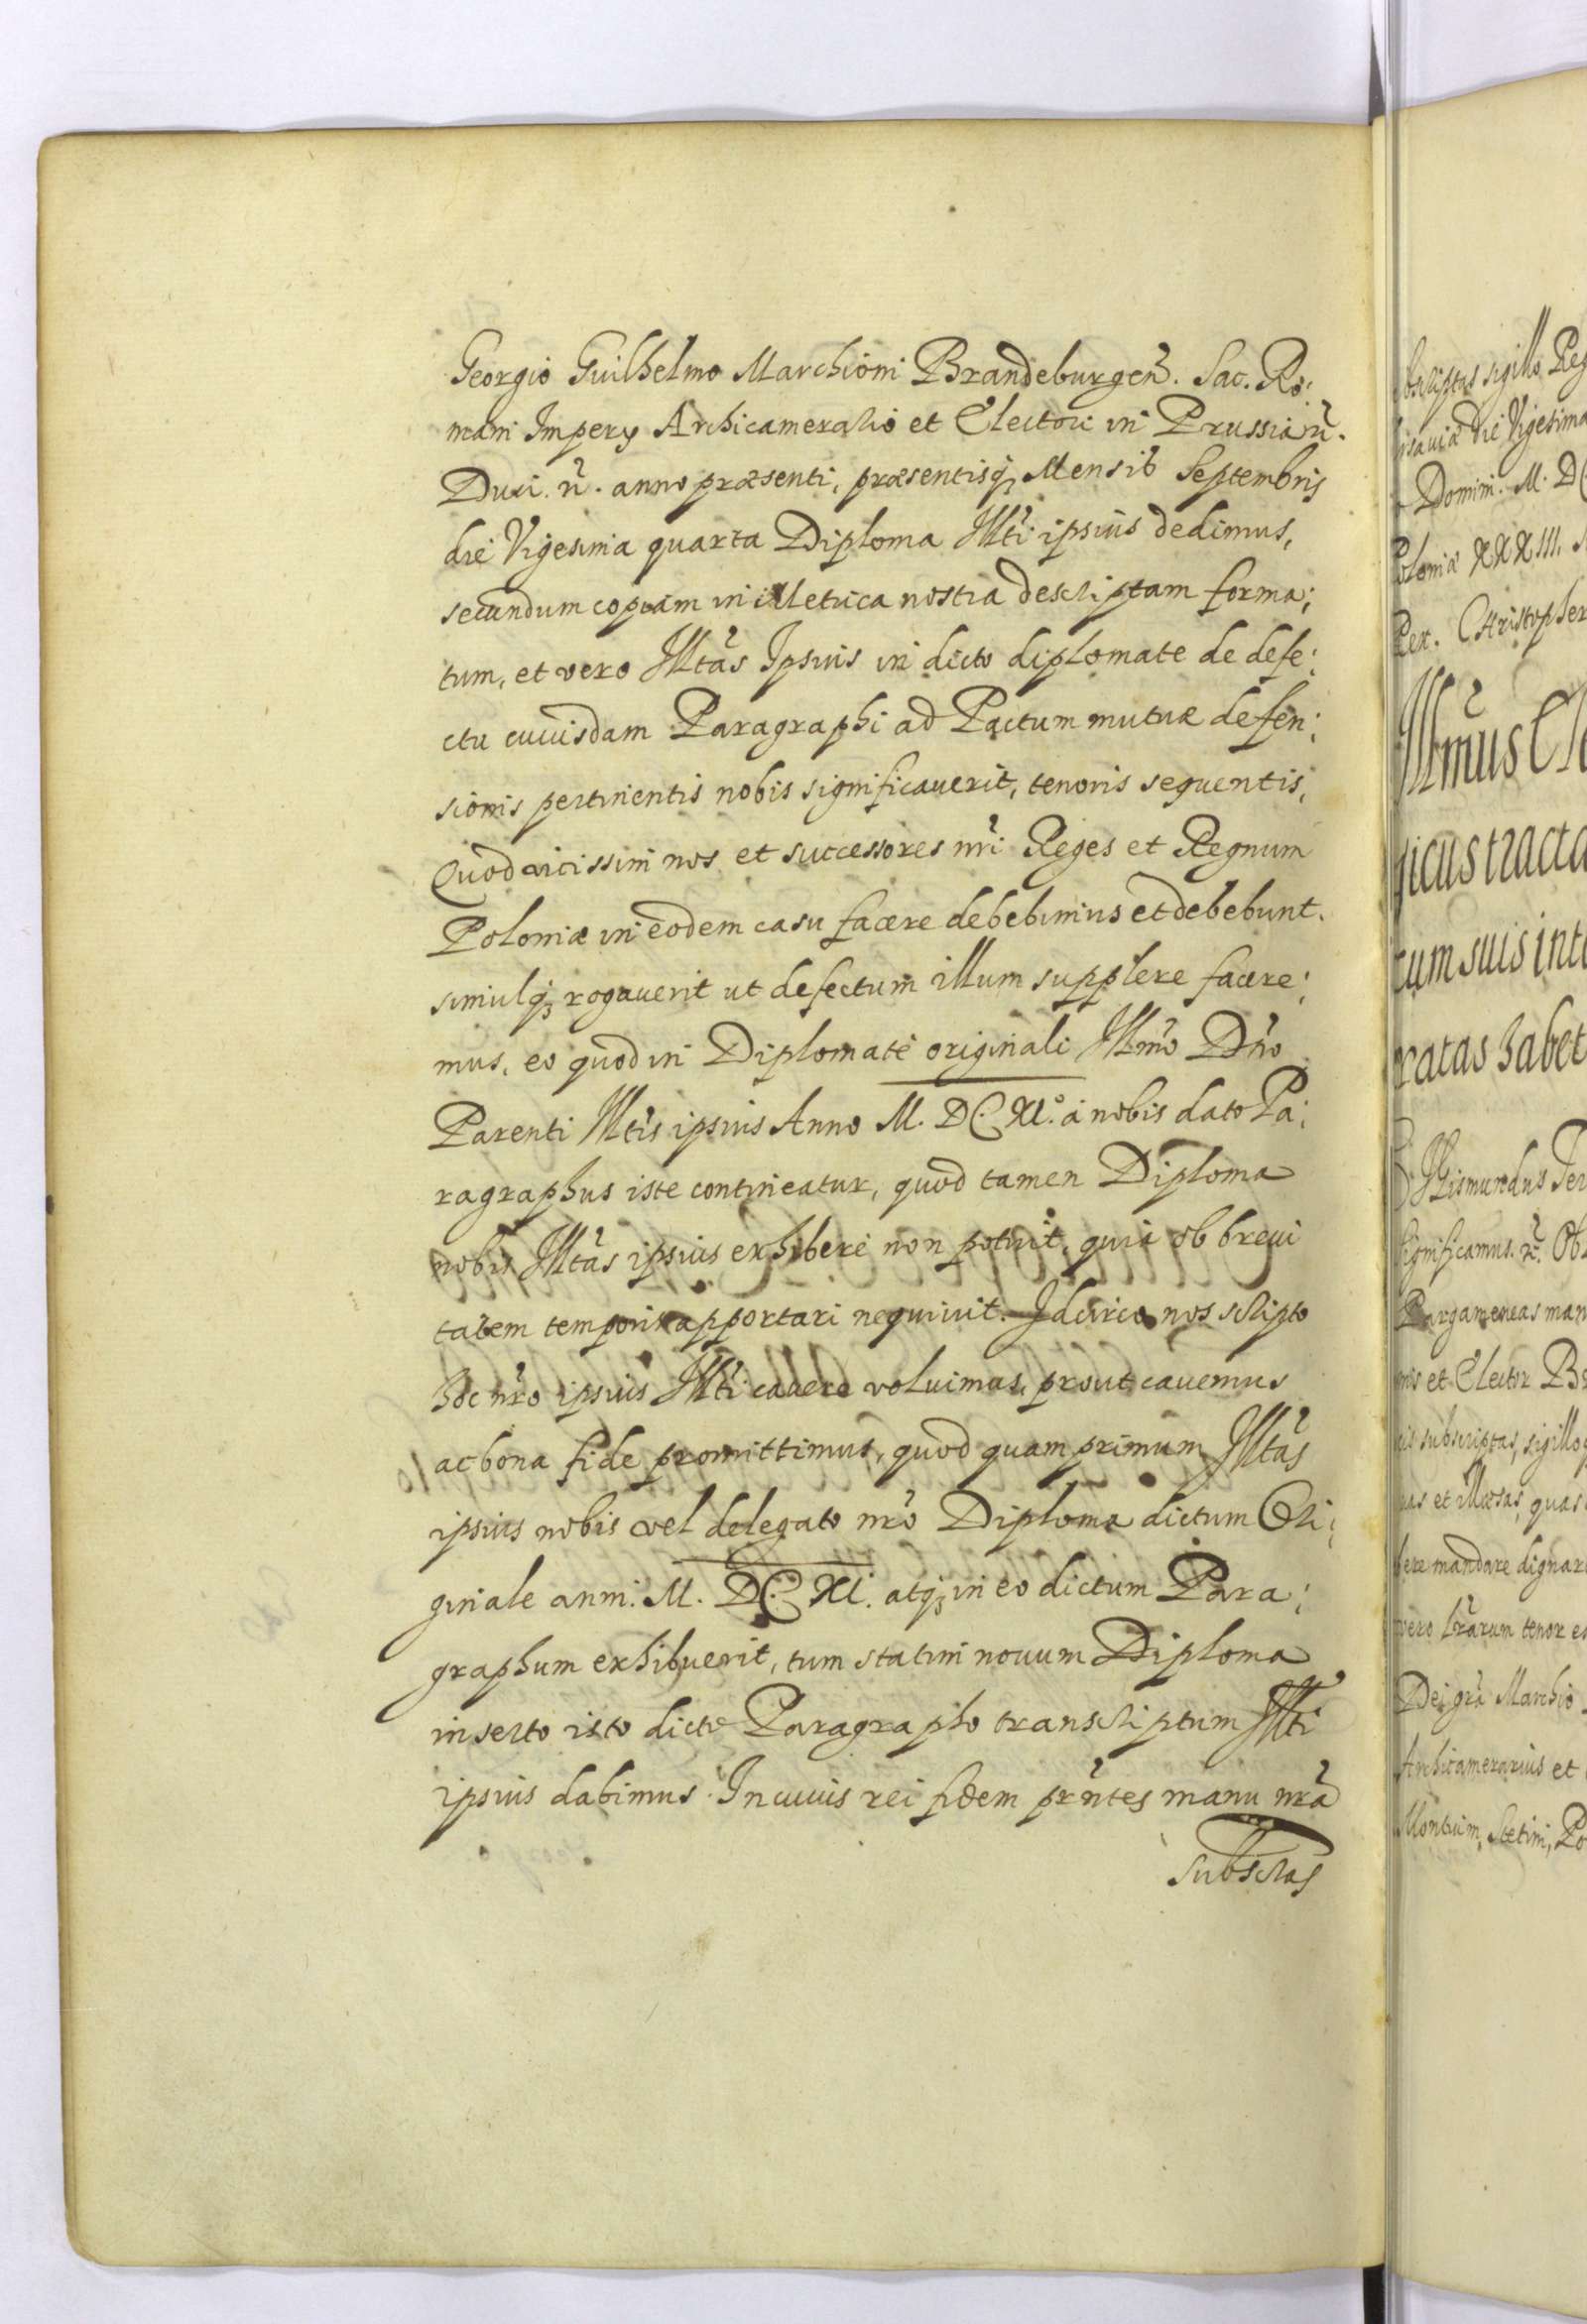 Georgio Guilhelmo Marchioni Brandeburgeñ. Sac. Ro:
mani Impery Archicamerario et Electori in Prussia ñ.
Duci. ñ. anno præsenti, præsentisq3 Mensis Septembris
die Vigesima quarta Diploma Illti ipsius dedimus,
secundum copiam in Metrica nostra descriptam forma:
tum, et vero Illtas Ipsius in dicto diplomate de defe:
ctu cuiusdam Paragraphi ad Pactum mutuæ defen:
sionis pertinentis nobis significauerit, tenoris sequentis,
Quod vicissim nos et successores nri Reges et Regnum
Poloniæ in eodem casu facere debebimus et debebunt.
simulq3 rogauerit ut defectum illum supplere facere:
mus, eo quod in Diplomate originali Illmo Dno
Parenti Illtis ipsius Anno M. DC. XI.° a nobis dato Pa:
ragraphus iste contineatur, quod tamen Diploma
nobis Illtas ipsius exhibere non potuit, quia ob breui
tatem temporis apportari nequiuit. Idcirco nos scripto
hoc nro ipsius Illti cauere voluimus, prout cauemus
ac bona fide promittimus, quod quam primum Illtas
ipsius nobis vel delegato nro Diploma dictum Ori:
ginale anni. M. DC. XI. atq3 in eo dictum Para:
graphum exhibuerit, tum statim nouum Diploma
inserto isto dicto Paragrapho transcriptum Illti
ipsius dabimus. In cuius rei fidem prntes manu nra
subscras
subscriptas sigillo Reg
die Vigesima
Domini. M. DC
Poloniæ XXXIII. S
Rex. Christopher
Illmus Ele
gicus tracta
cum suis int
ratas habet
Sigismundus Ter
significamus. ñ. Ob
Pargameneas man
nis et Elector Br
subscriptas, sigilloq
uas et illæsas, quas
bere mandare dignar
vero lrarum tenor e
Dei gra Marchio
Archicamerarius et
Montium, Stetini, Po